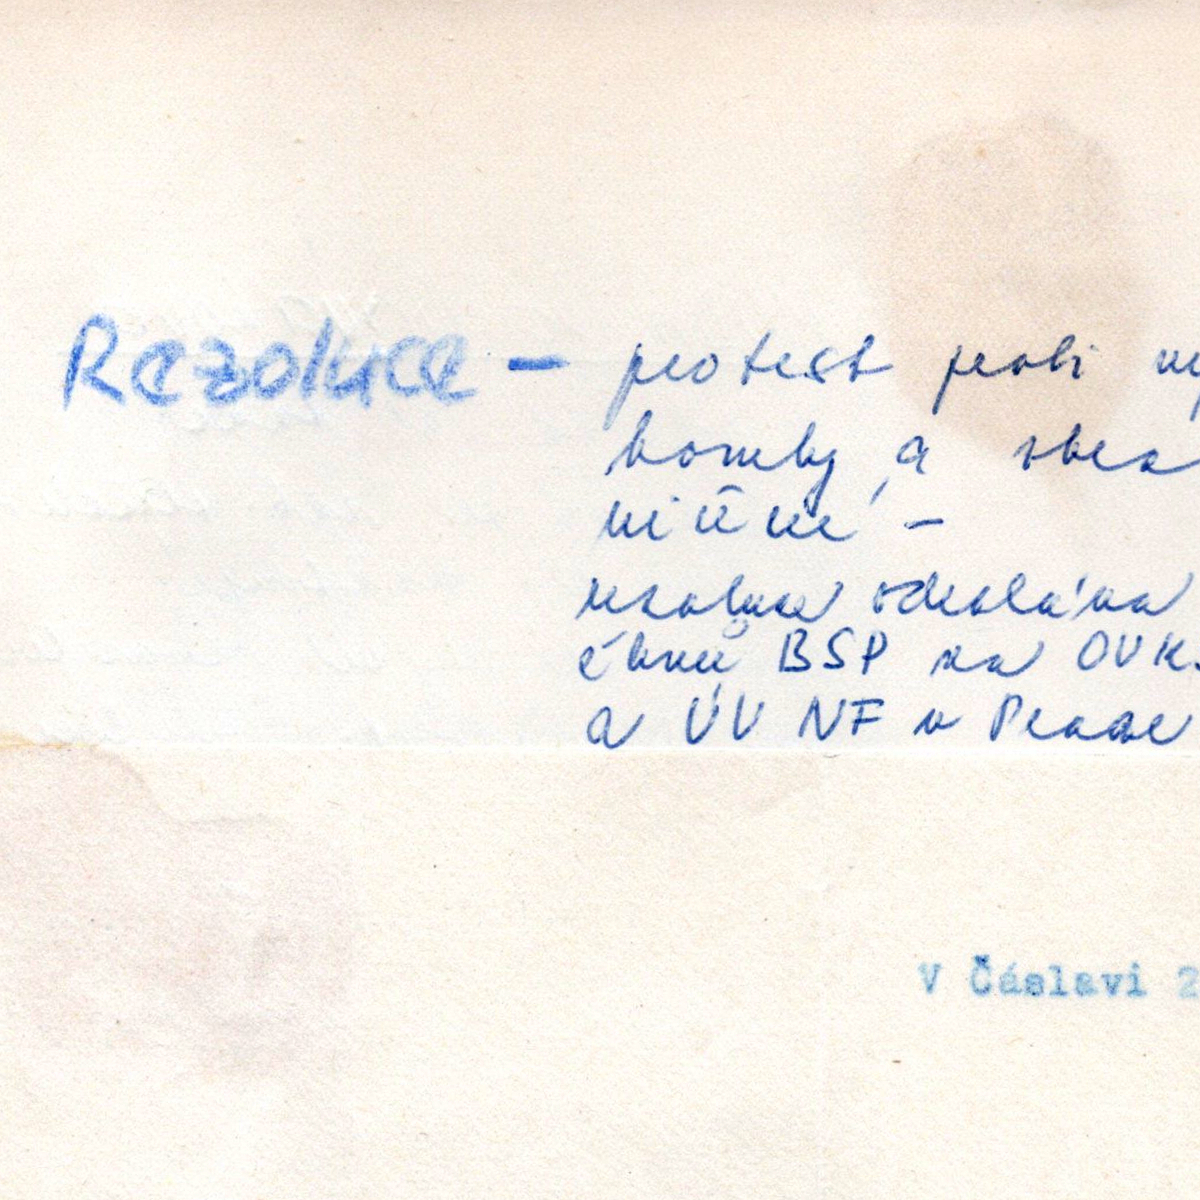 Rezoluce - protest proti
bomby, a
ničné -
resoluce odeslána
členů BSP na OVKS
a ÚV NF v Praze
V Čáslavi 2